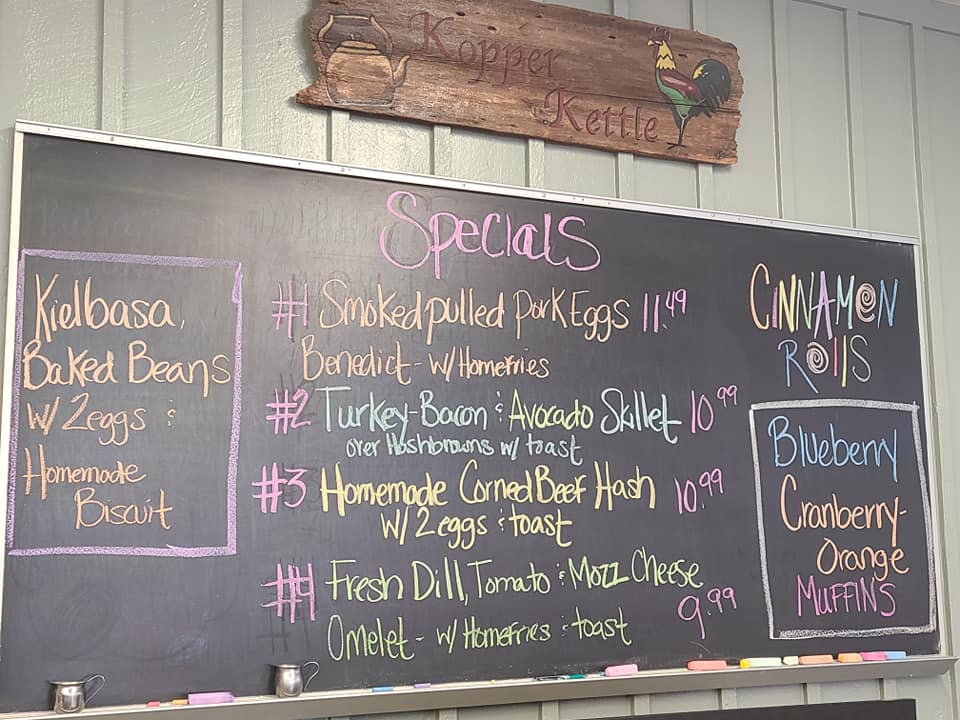 Kopper
Kettle
Specials
Kielbasa,
Baked Beans
w/ 2 eggs &
Homemade
Biscuit
#1 Smoked pulled Pork Eggs 11.49
Benedict - w/ Homefries
#2 Turkey-Bacon & Avocado Skillet 10.99
over Hashbrowns w/ toast
#3 Homemade Corned Beef Hash 10.99
w/ 2 eggs & toast
#4 Fresh Dill, Tomato & Mozz Cheese
Omelet - w/ Homefries & toast 9.99
Cinnamon
Rolls
Blueberry
Cranberry-
Orange
Muffins